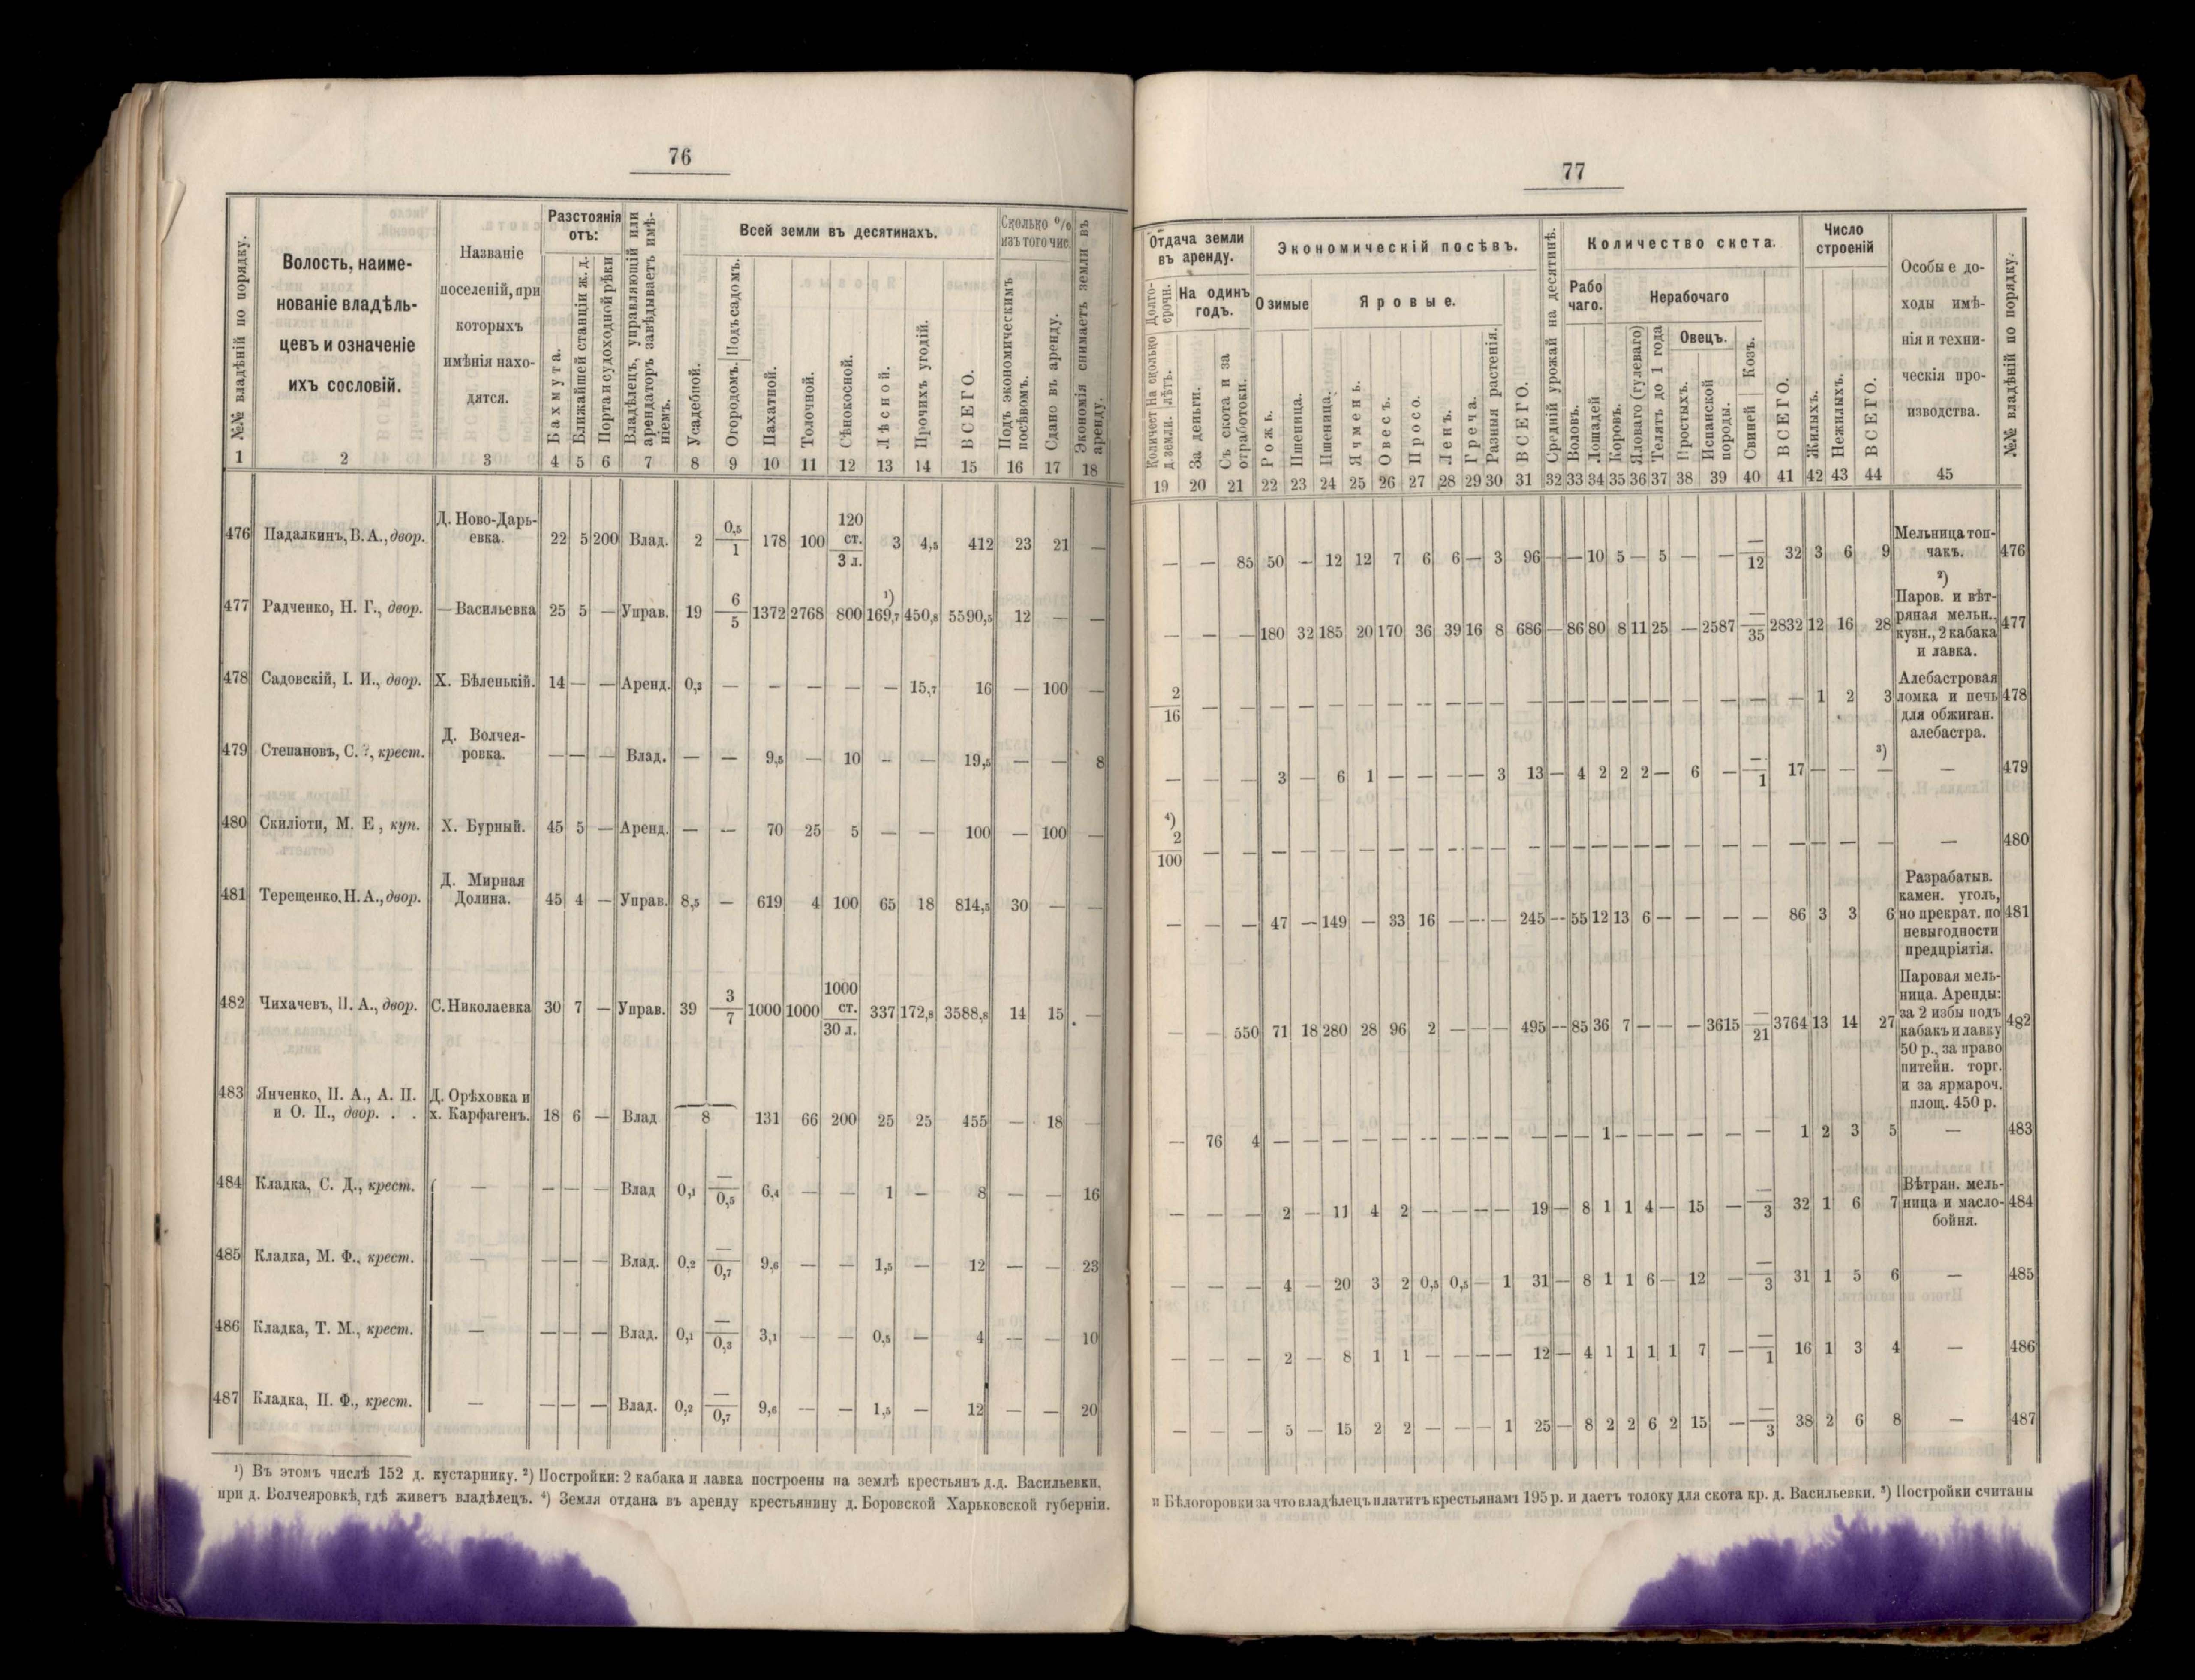 76
№№ владѣній по порядку.
Волость, наиме-
нованіе владѣль-
цевъ и означеніе
ихъ сословій.
Названіе
поселеній, при
которыхъ
имѣнія нахо-
дятся.
Разстоянія
отъ:
Бахмута.
Ближайшей станціи ж. д.
Порта и судоходной рѣки
Владѣлецъ, управляющій или
арендаторъ завѣдываетъ имѣ-
ніемъ.
Всей земли въ десятинахъ.
Усадебной.
Огородомъ. Подъ садомъ.
Пахатной.
Толочной.
Сѣнокосной.
Лѣсной.
Прочихъ угодій.
ВСЕГО.
Сколько %
изъ того чис.
Подъ экономическимъ
посѣвомъ.
Сдано въ аренду.
Экономія снимаетъ земли въ
аренду.
1 2 3 4 5 6 7 8 9 10 11 12 13 14 15 16 17 18
476 Падалкинъ, В. А., двор. Д. Ново-Дарь-
евка. 22 5 200 Влад. 2 0,5/1 178 100 120 ст./3 л. 3 4,5 412 23 21 —
477 Радченко, Н. Г., двор. — Васильевка 25 5 — Управ. 19 6/5 1372 2768 800 ¹) 169,7 450,8 5590,5 12 — —
478 Садовскій, І. И., двор. Х. Бѣленькій. 14 — — Аренд. 0,3 — — — — — 15,7 16 — 100 —
479 Степановъ, С. крест. Д. Волчея-
ровка. — — — Влад. — — 9,5 — 10 — — 19,5 — — 8
480 Скиліоти, М. Е, куп. Х. Бурный. 45 5 — Аренд. — — 70 25 5 — — 100 — 100 —
481 Терещенко, Н. А., двор. Д. Мирная
Долина. 45 4 — Управ. 8,5 — 619 4 100 65 18 814,5 30 — —
482 Чихачевъ, П. А., двор. С. Николаевка 30 7 — Управ. 39 3/7 1000 1000 1000 ст./30 л. 337 172,8 3588,8 14 15 —
483 Янченко, П. А., А. П.
и О. П., двор. . . Д. Орѣховка и
х. Карфагенъ. 18 6 — Влад 8 131 66 200 25 25 455 — 18 —
484 Кладка, С. Д., крест. — — — — Влад 0,1 —/0,5 6,4 — — 1 — 8 — — 16
485 Кладка, М. Ф., крест. — — — — Влад. 0,2 —/0,7 9,6 — — 1,5 — 12 — — 23
486 Кладка, Т. М., крест. — — — — Влад. 0,1 —/0,3 3,1 — — 0,5 — 4 — — 10
487 Кладка, П. Ф., крест. — — — — Влад. 0,2 —/0,7 9,6 — — 1,5 — 12 — — 20
¹) Въ этомъ числѣ 152 д. кустарнику. ²) Постройки: 2 кабака и лавка построены на землѣ крестьянъ д.д. Васильевки,
при д. Волчеяровкѣ, гдѣ живетъ владѣлецъ. ⁴) Земля отдана въ аренду крестьянину д. Боровской Харьковской губерніи.
77
Отдача земли
въ аренду.
Долго-
срочн.
Количест На сколько
д. земли. лѣтъ.
На одинъ
годъ.
За деньги.
Съ скота и за
отработоки.
Экономическій посѣвъ.
Озимые
Рожь.
Пшеница.
Яровые.
Пшеница.
Ячмень.
Овесъ.
Просо.
Ленъ.
Греча.
Разныя растенія.
ВСЕГО.
Средній урожай на десятинѣ.
Количество скота.
Рабо
чаго.
Воловъ.
Лошадей
Нерабочаго
Коровъ.
Яловаго (гулеваго)
Телятъ до 1 года
Овецъ.
Простыхъ.
Испанской
породы.
Свиней Козъ.
ВСЕГО.
Число
строеній
Жилыхъ.
Нежилыхъ.
ВСЕГО.
Особые до-
ходы имѣ-
нія и техни-
ческія про-
изводства.
№№ владѣній по порядку.
19 20 21 22 23 24 25 26 27 28 29 30 31 32 33 34 35 36 37 38 39 40 41 42 43 44 45
— — 85 50 — 12 12 7 6 6 — 3 96 — — 10 5 — 5 — — —/12 32 3 6 9 Мельница топ-
чакъ. 476
— — — 180 32 185 20 170 36 39 16 8 686 — 86 80 8 11 25 — 2587 —/35 2832 12 16 28 ²)
Паров. и вѣт-
ряная мельн.,
кузн., 2 кабака
и лавка. 477
2/16 — — — — — — — — — — — — — — — — — — — — — — 1 2 3 Алебастровая
ломка и печь
для обжиган.
алебастра. 478
— — — 3 — 6 1 — — — — 3 13 — 4 2 2 2 — 6 — —/1 17 — — ³) — — 479
⁴) 2/100 — — — — — — — — — — — — — — — — — — — — — — — — — — 480
— — — 47 — 149 — 33 16 — — — 245 — 55 12 13 6 — — — — 86 3 3 6 Разрабатыв.
камен. уголь,
но прекрат. по
невыгодности
предпріятія. 481
— — 550 71 18 280 28 96 2 — — — 495 — 85 36 7 — — — 3615 —/21 3764 13 14 27 Паровая мель-
ница. Аренды:
за 2 избы подъ
кабакъ и лавку
50 р., за право
питейн. торг.
и за ярмароч.
площ. 450 р. 482
— 76 4 — — — — — — — — — — — — 1 — — — — — — 1 2 3 5 — 483
— — — 2 — 11 4 2 — — — — 19 — 8 1 1 4 — 15 — —/3 32 1 6 7 Вѣтрян. мель-
ница и масло-
бойня. 484
— — — 4 — 20 3 2 0,5 0,5 — 1 31 — 8 1 1 6 — 12 — —/3 31 1 5 6 — 485
— — — 2 — 8 1 1 — — — — 12 — 4 1 1 1 1 7 — —/1 16 1 3 4 — 486
— — — 5 — 15 2 2 — — — 1 25 — 8 2 2 6 2 15 — —/3 38 2 6 8 — 487
и Бѣлогоровки за что владѣлецъ платитъ крестьянамъ 195 р. и даетъ толоку для скота кр. д. Васильевки. ³) Постройки считаны